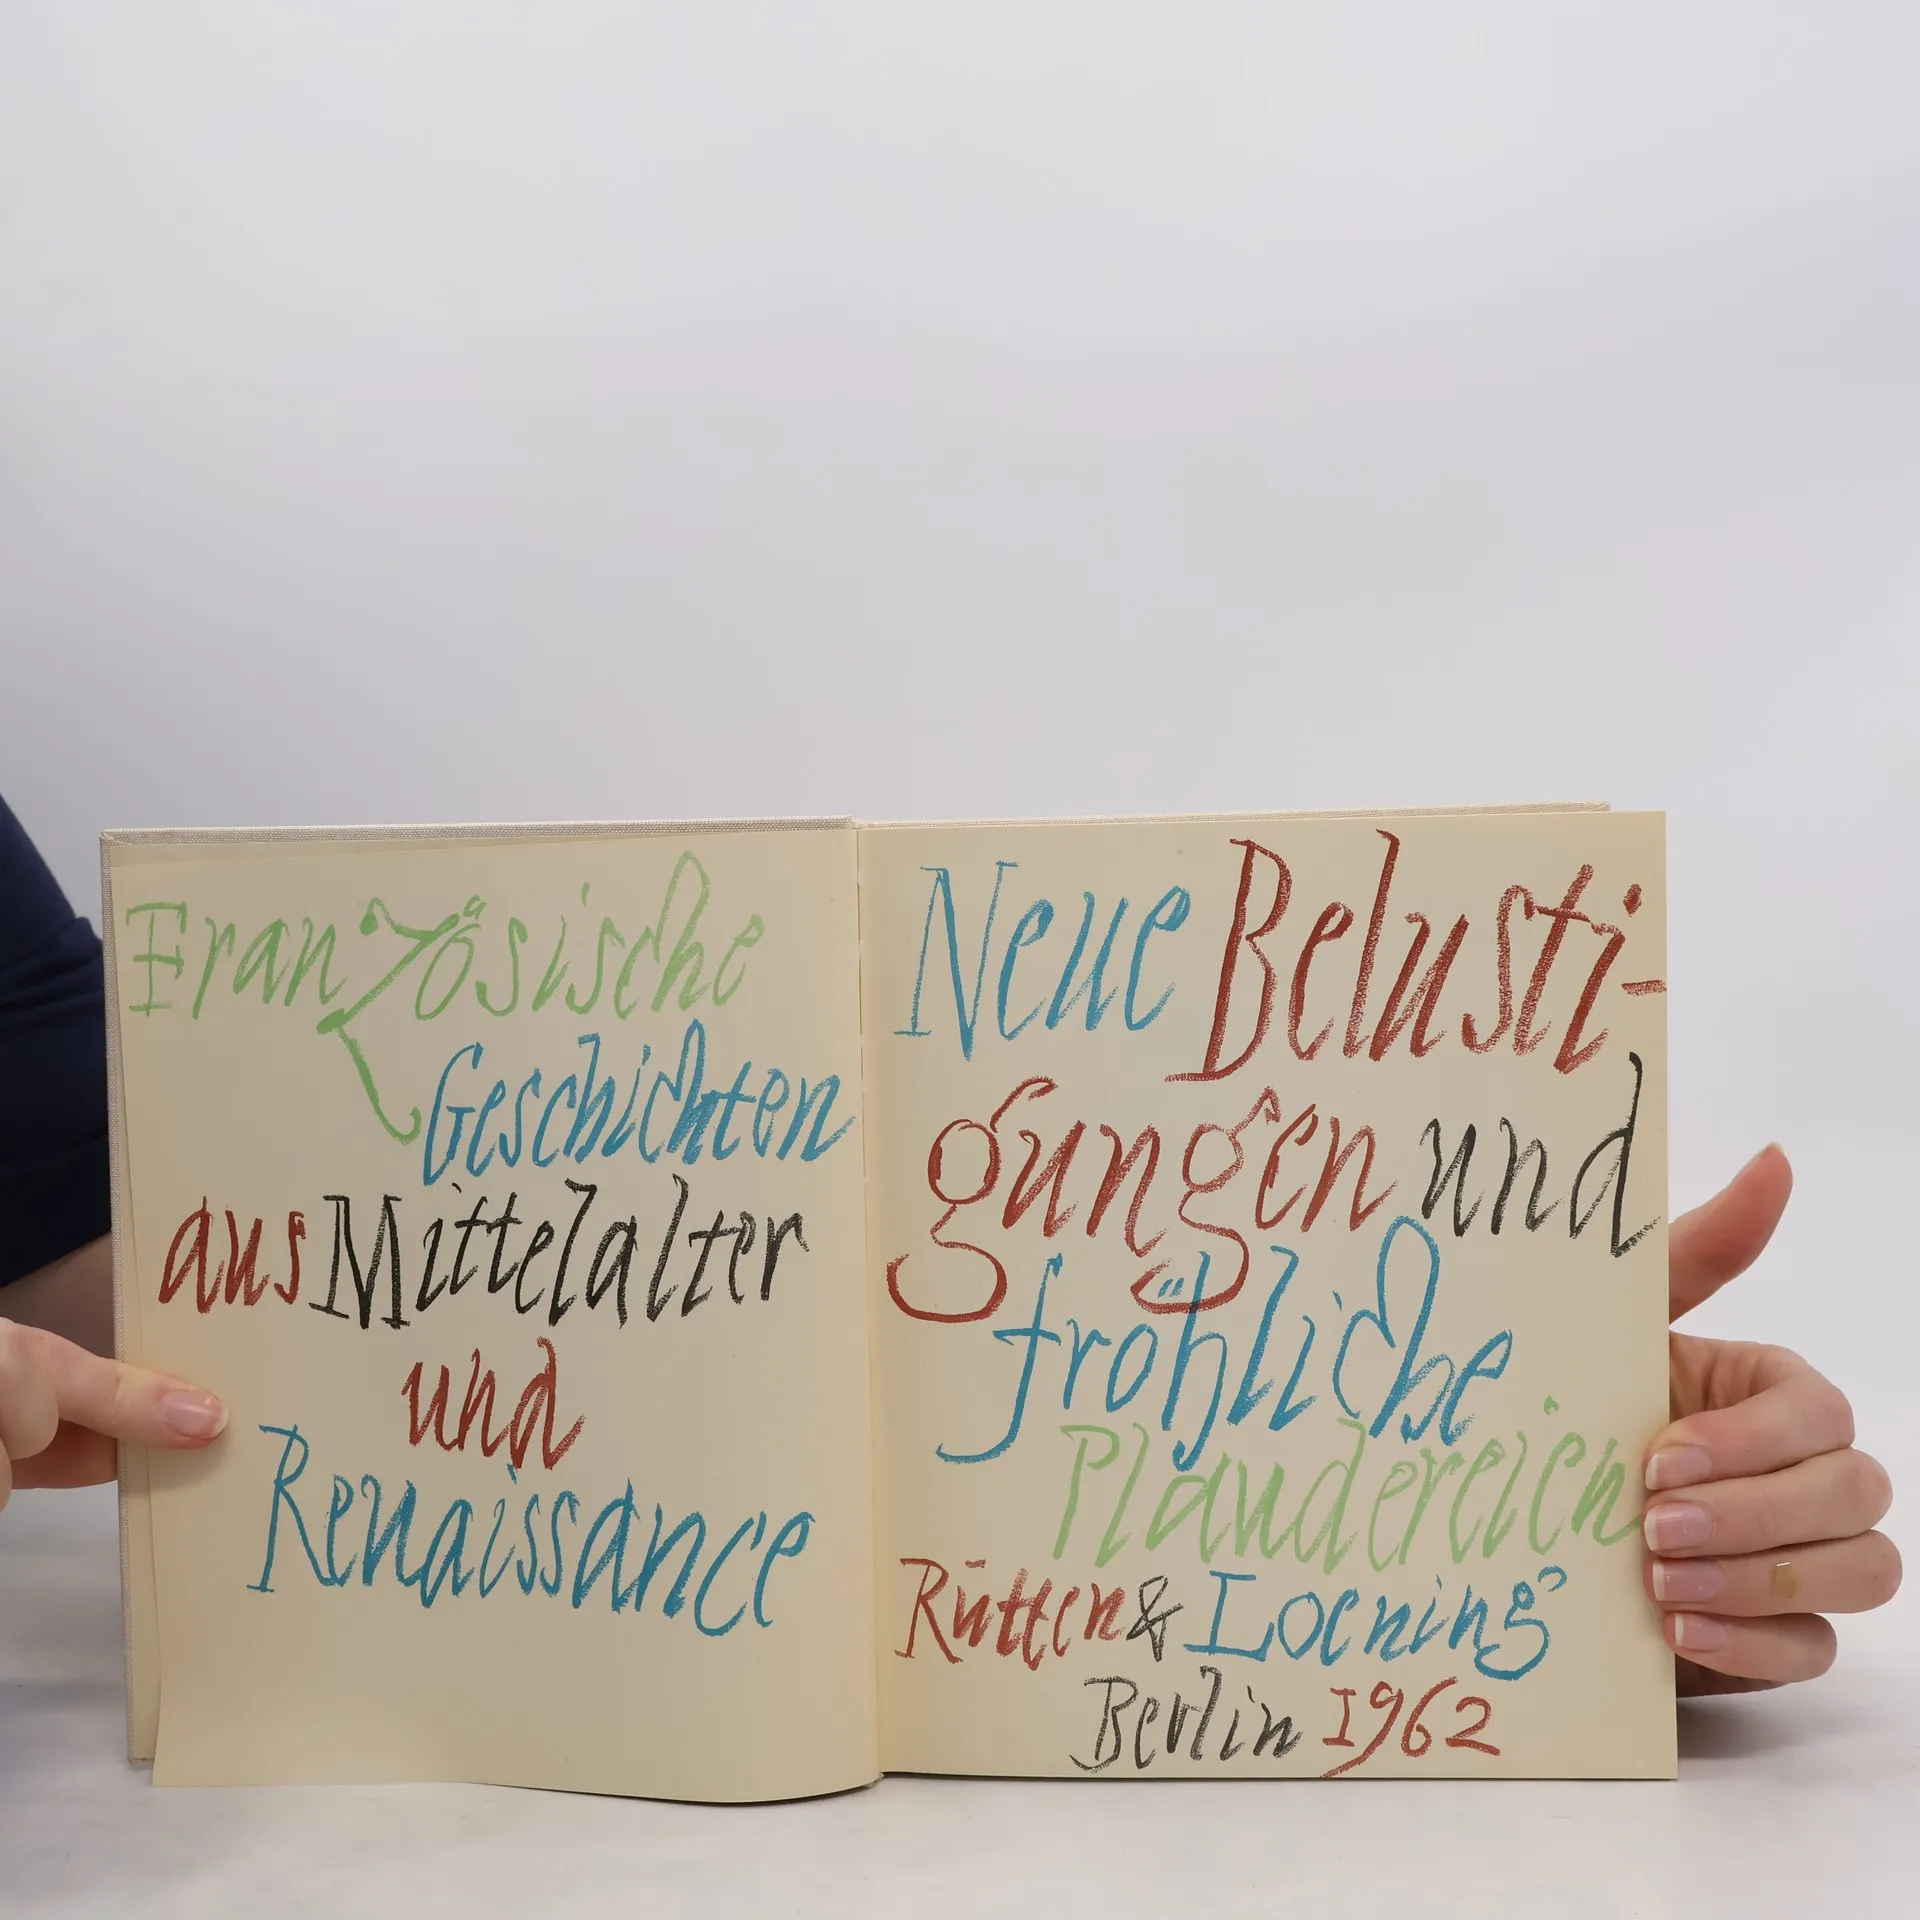 Französische
Geschichten
aus Mittelalter
und
Renaissance
Neue Belusti-
gungen und
fröhliche
Plaudereien
Rütten & Loening
Berlin 1962